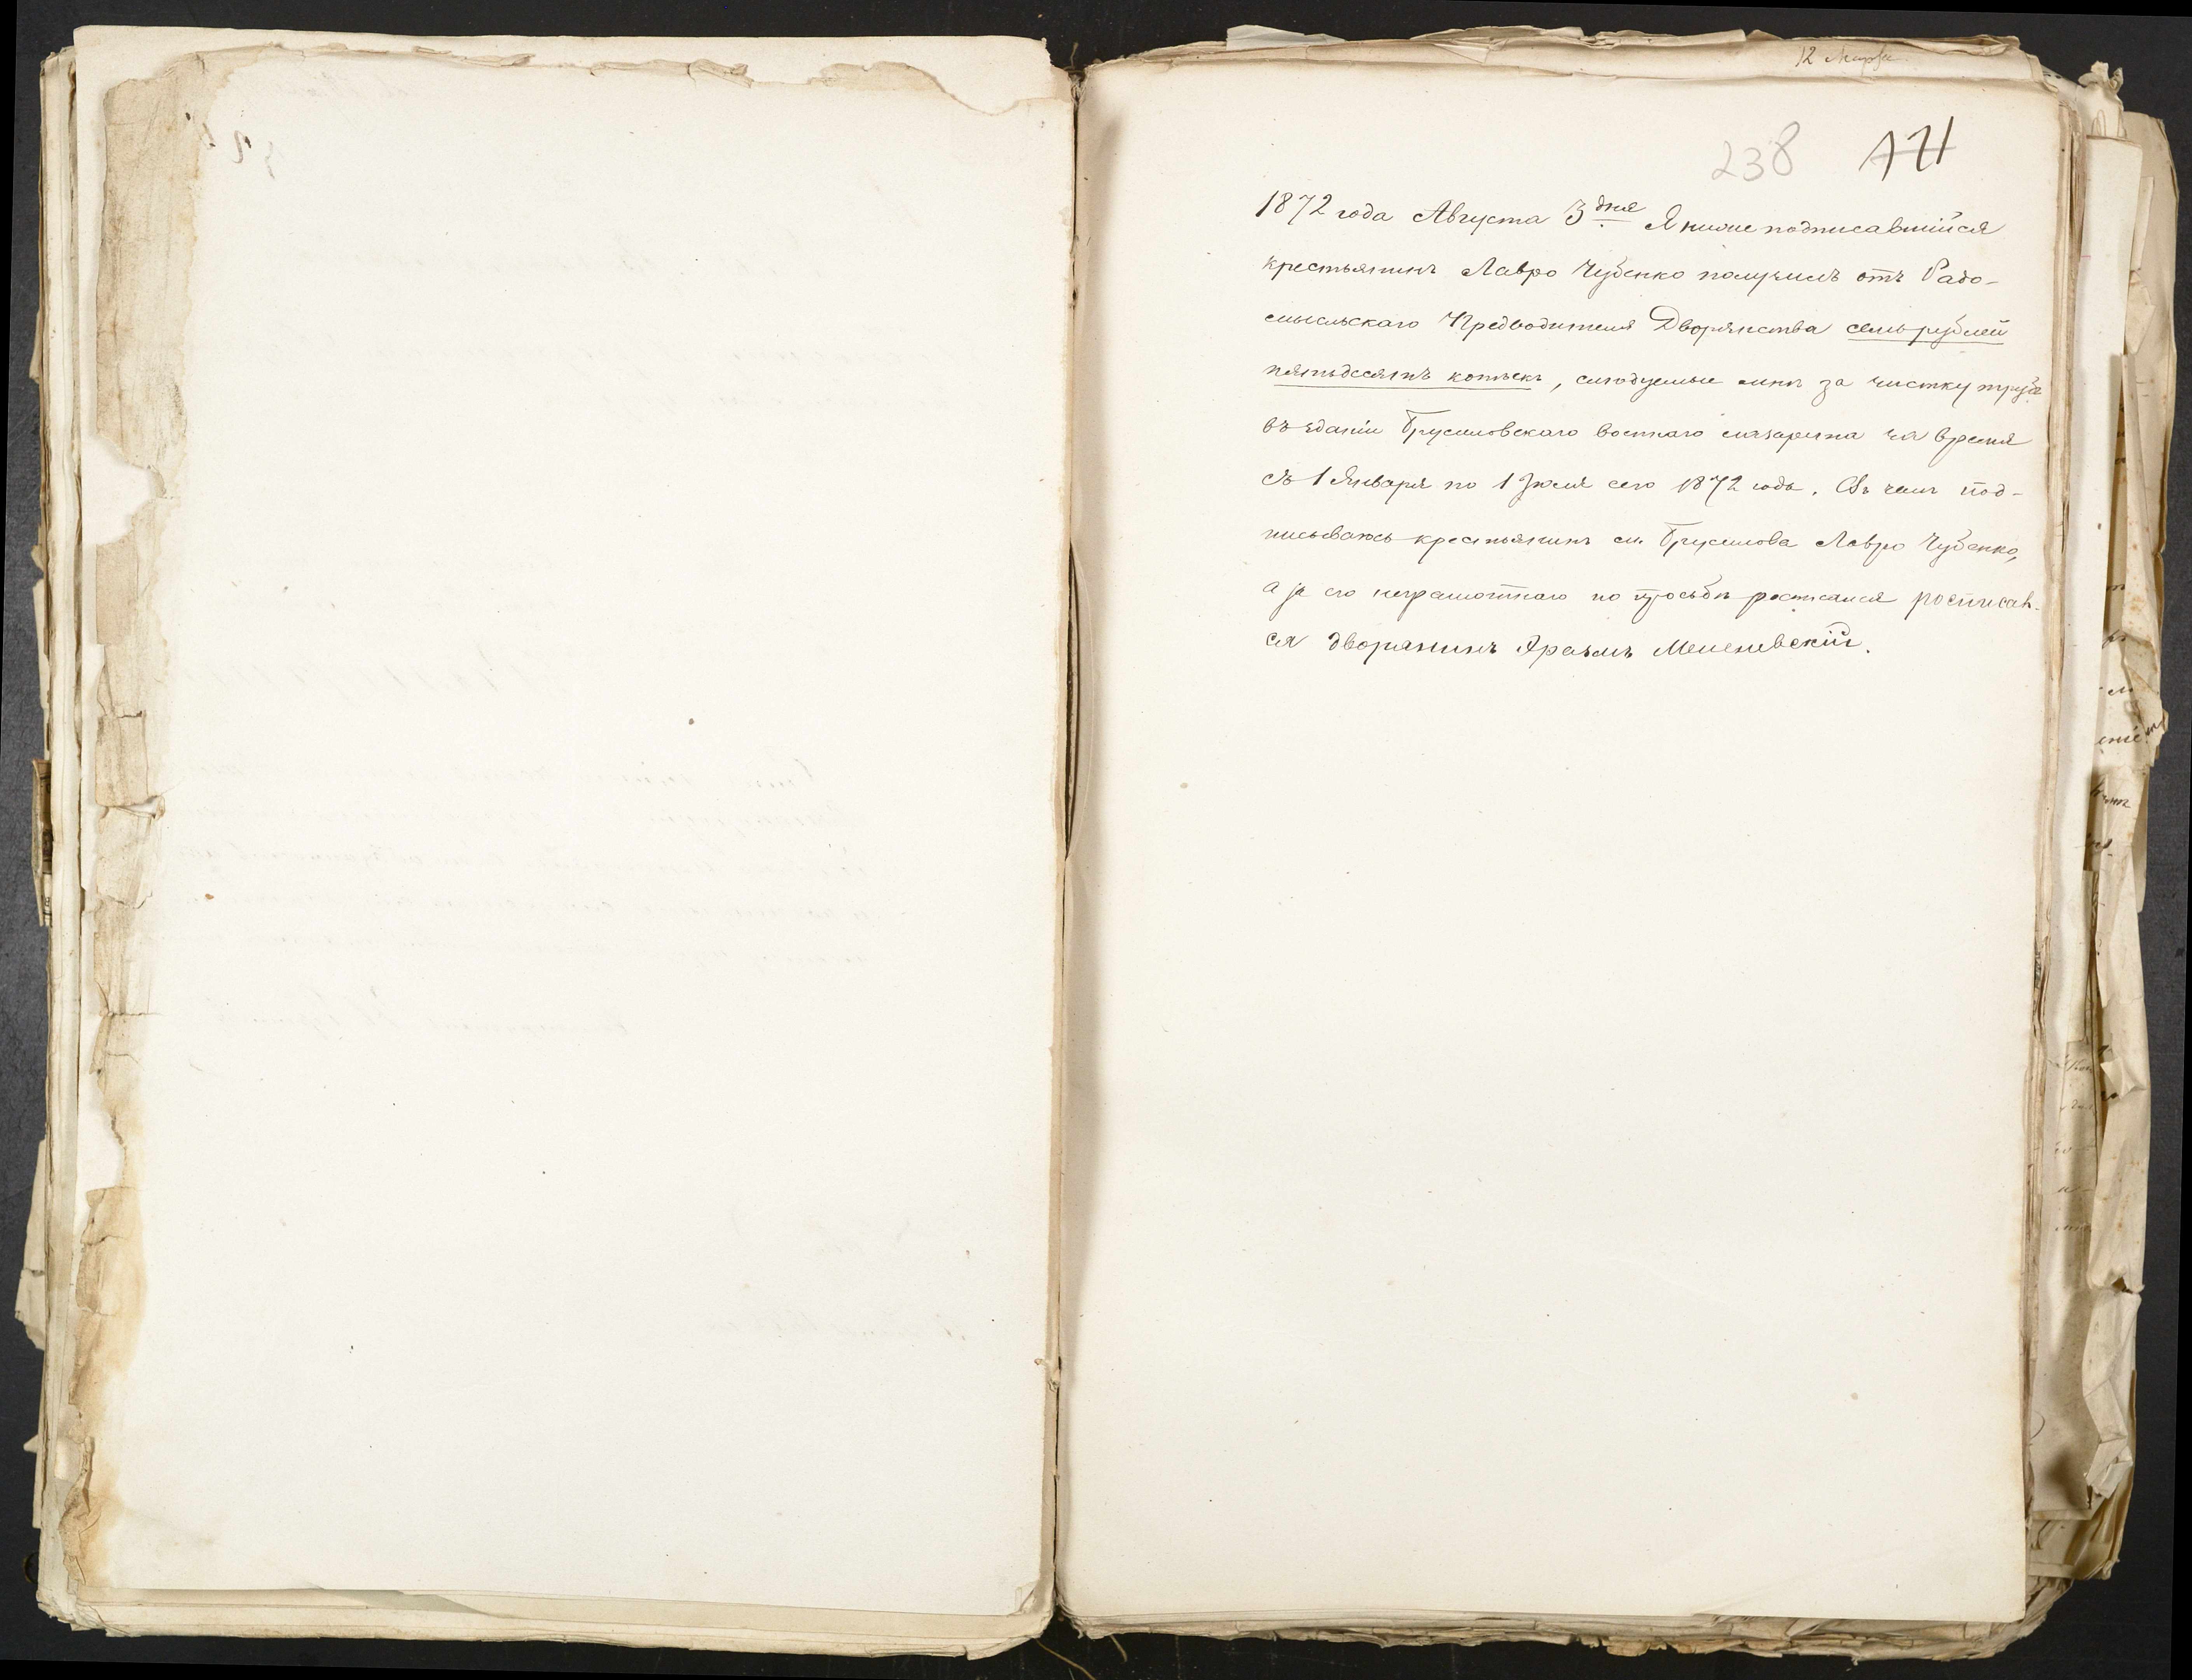 12 Марта
238 171
1872 года Августа 3 дня Я ниже подписавшійся
крестьянинъ Лавро Чубенко получилъ отъ Радо-
мысльскаго Предводителя Дворянства семь рублей
пятьдесятъ копѣекъ, слѣдуемые мнѣ за чистку трубъ
въ зданіи Брусиловскаго военнаго лазарета за время
съ 1 Января по 1 Іюля сего 1872 года. Въ чемъ под-
писываюсь крестьянинъ м. Брусилова Лавро Чубенко,
а за его неграмотнаго по просьбѣ росписался росписал-
ся дворянинъ